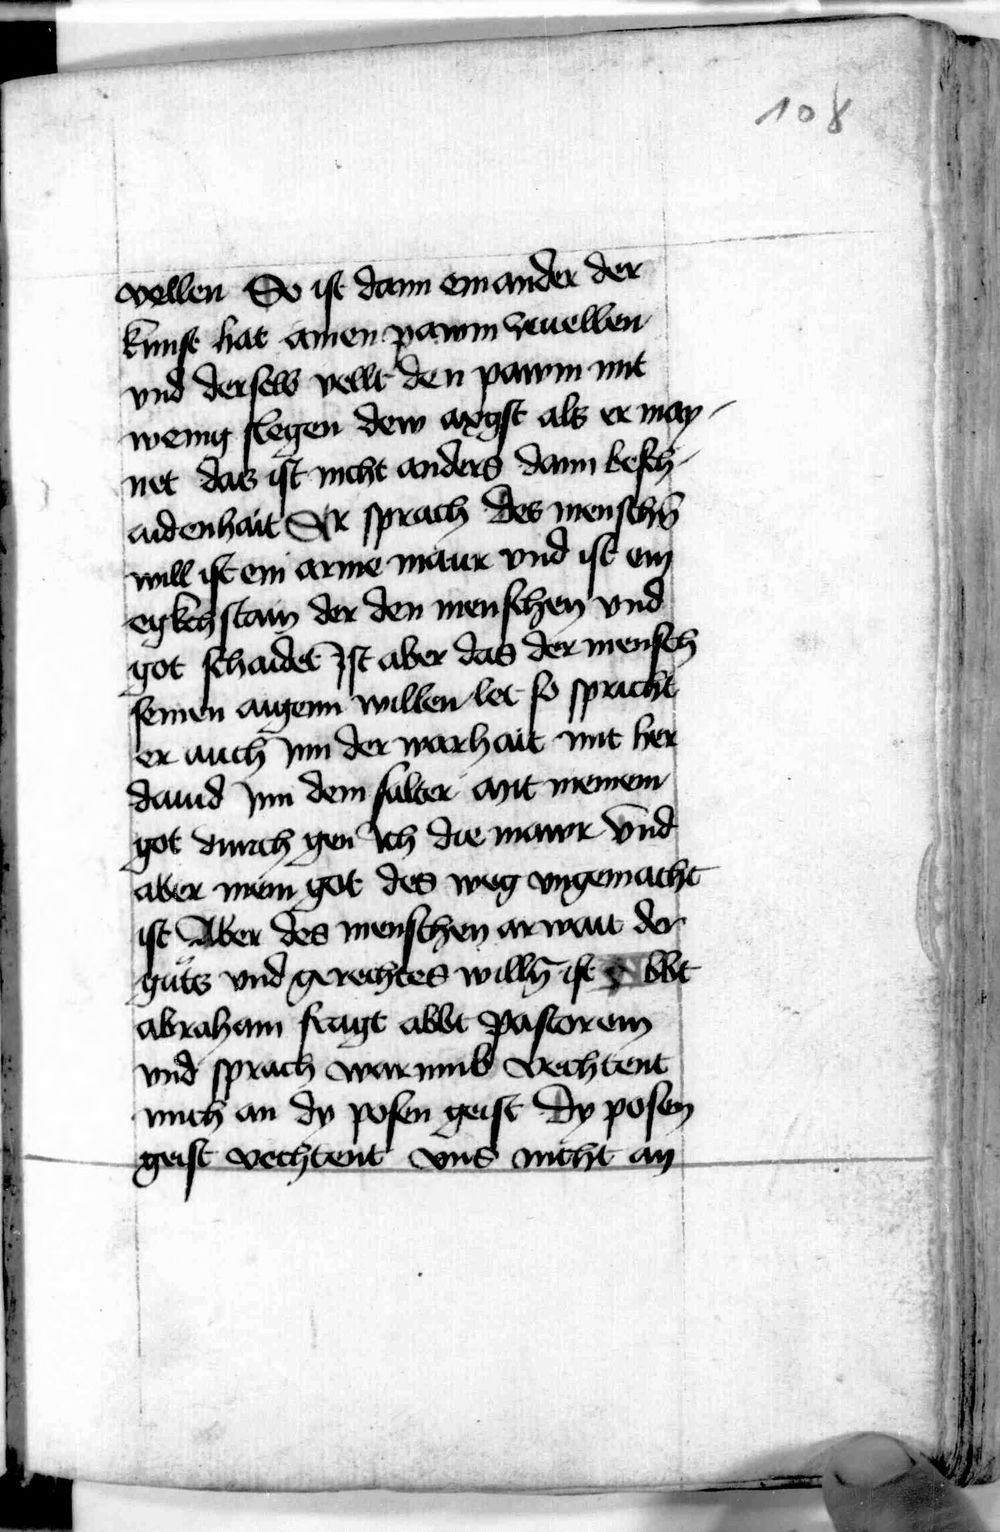 108
vellen So ist dann ein ander der
kunst hat ainen pawm zeuellen
vnd derselb vellt den pawm mit
wenig slegen dew axgst als er may-
net das ist nicht anders dann besch-
aidenhait Er sprach des menschen̄
will ist ein arme maur vnd ist ein
egkchstain der den menschen vnd
got schaidet Ist aber das der mensch
seinen aigenn willen let so spricht
er auch Inn der warhait mit her
dauid Inn dem salter Mit meinem
got durch gen Ich die mawr Vnd
aber mein got des weg vngemacht
ist Aber des menschen arwait der
guͦts vnd gerechtes willn̄ ist bbt
abraham fragt abbt pastorem
vnd sprach warumb vechtent
mich an dy posen geist Dy posen
geist vechtent vns nicht an